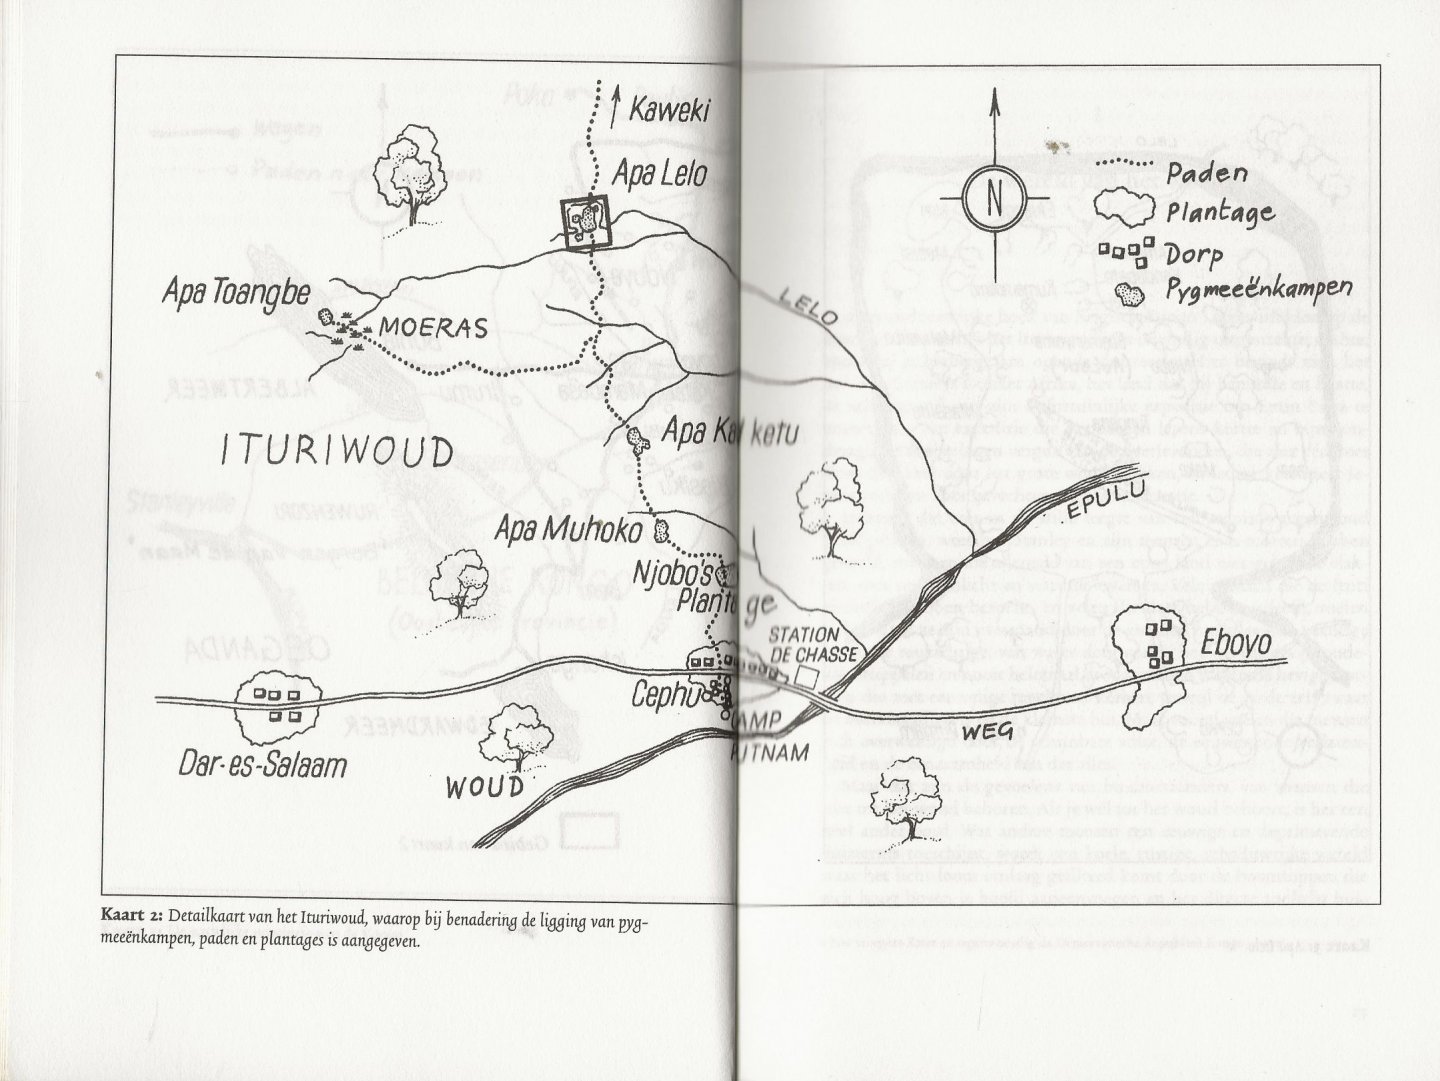 Kaweki
Apa Lelo
N
Paden
Plantage
Dorp
Pygmeeënkampen
Apa Toangbe
MOERAS
LELO
ITURIWOUD
Apa Ka ketu
EPULU
Apa Muhoko
Njobo's
Plant ge
STATION
DE CHASSE
Eboyo
Cephu
CAMP
PUTNAM
WEG
Dar-es-Salaam
WOUD
Kaart 2: Detailkaart van het Ituriwoud, waarop bij benadering de ligging van pyg-
meeënkampen, paden en plantages is aangegeven.